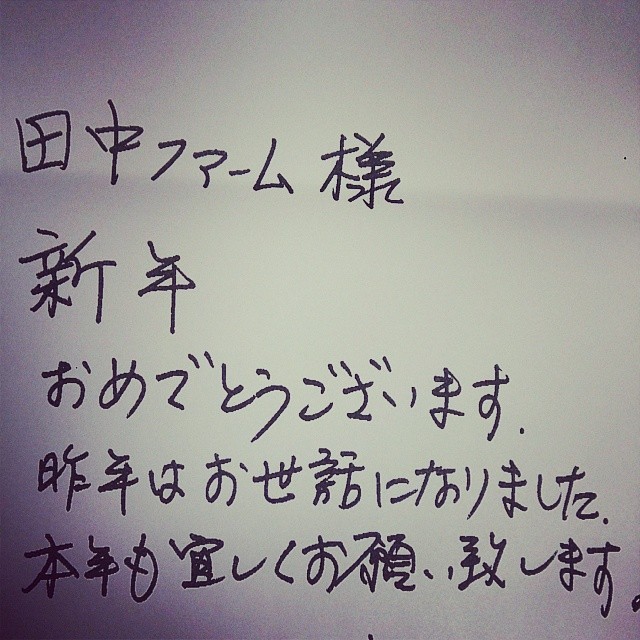 田中ファーム様
新年
おめでとうございます.
昨年はお世話になりました.
本年も宜しくお願い致します。